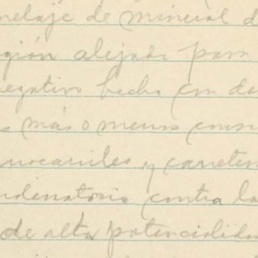 nelaje de mineral d
gión alejada para
negativo hecho con da
s más o menos cons
rrocarriles y carreter
ndenatorio contra la
de alta potencialida